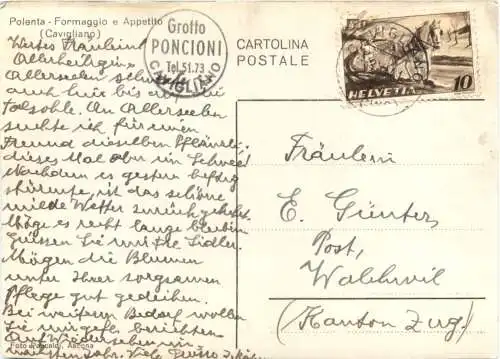 Polenta - Formaggio e Appetito
(Cavigliano)
Grotto
PONCIONI
Tel. 51.73
CAVIGLIANO
CARTOLINA
POSTALE
CAVIGLIANO
HELVETIA 10
Wertes Fräulein!
Allerheiligen
Allerseelen
auch hier bis
Talsohle. An Allerseelen
suchte ich für meinen
Freund dieselben
dieses Mal aber im Schnee!
Nachdem es gestern heftig
stürmte, ist das schöne
milde Wetter zurückgekehrt.
Möge es recht lange bleiben
Grüssen Sie mir Frl. Fidler.
Mögen die Blumen
unter Ihrer sorgsamen
Pflege gut gedeihen.
Bei weiterem Bedarf wollen
Sie mir gefl. berichten
Auf Wiedersehen im
nächsten Jahr. Viele Grüsse
Foto Pancaldi, Ascona
Fräulein
E. Günter,
Post,
Walchwil
(Kanton Zug!)